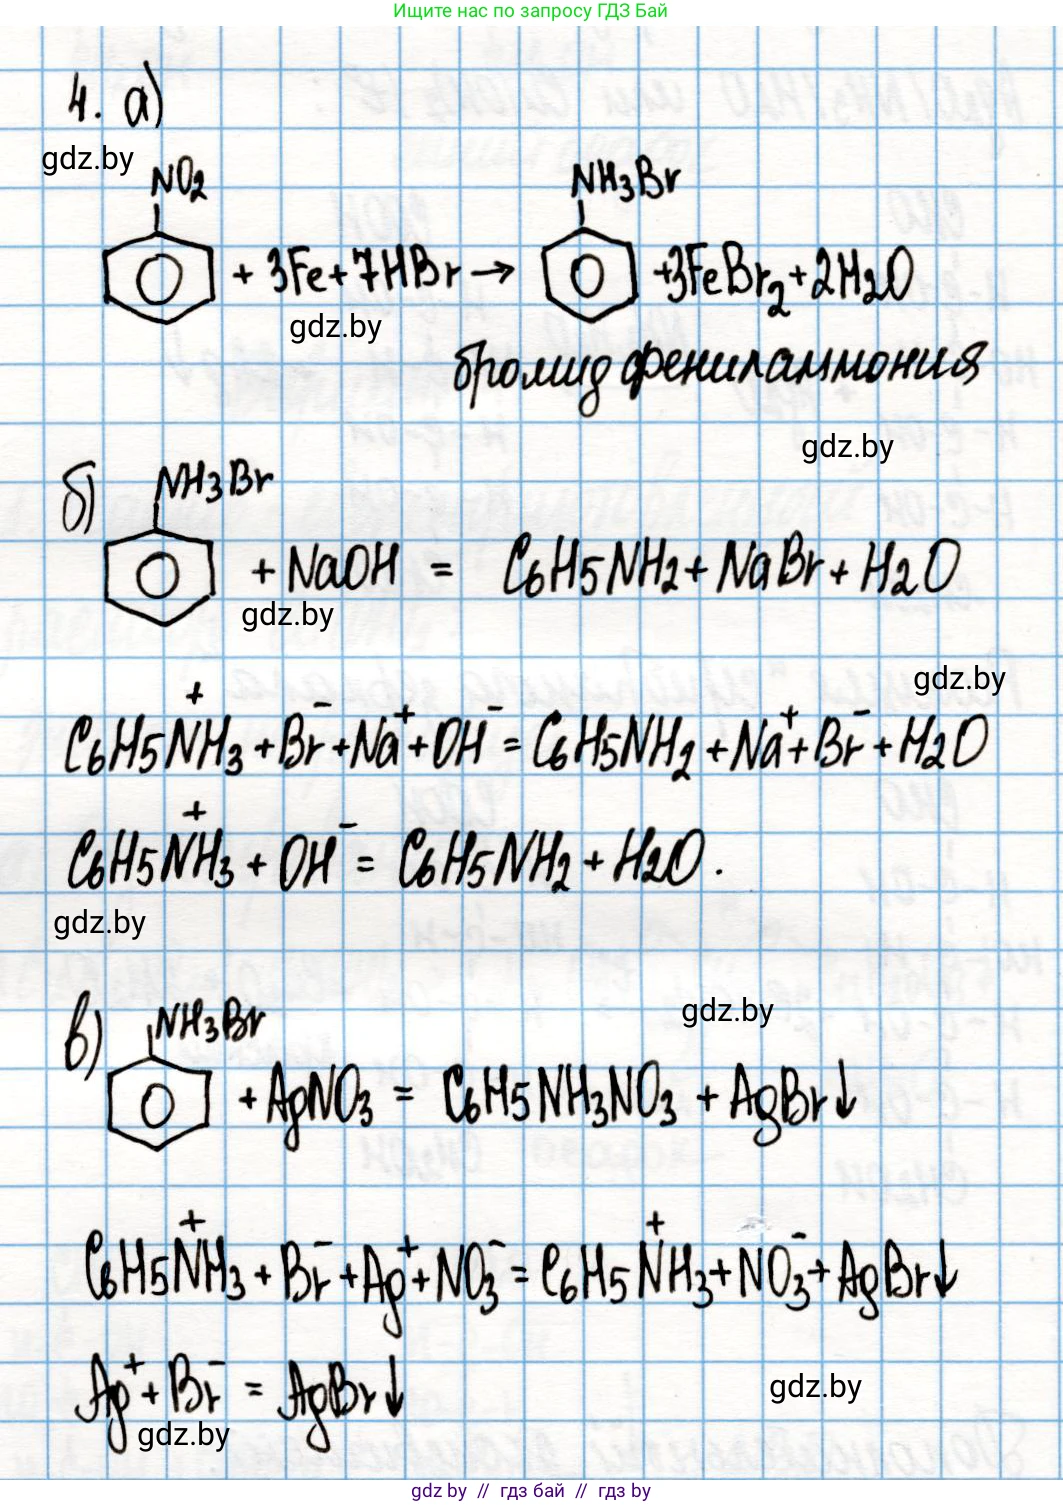 Ищите нас по запросу ГДЗ Бай
4. а)
gdz.by
NO2 NH3Br
+ 3Fe + 7HBr → +3FeBr2 + 2H2O
gdz.by
бромид фениламмония
gdz.by
б) NH3Br
+ NaOH = C6H5NH2 + NaBr + H2O
gdz.by
gdz.by
C6H5NH3⁺ + Br⁻ + Na⁺ + OH⁻ = C6H5NH2 + Na⁺ + Br⁻ + H2O
C6H5NH3⁺ + OH⁻ = C6H5NH2 + H2O.
gdz.by
gdz.by
в) NH3Br
+ AgNO3 = C6H5NH3NO3 + AgBr↓
C6H5NH3⁺ + Br⁻ + Ag⁺ + NO3⁻ = C6H5NH3⁺ + NO3⁻ + AgBr↓
Ag⁺ + Br⁻ = AgBr↓
gdz.by
gdz.by
gdz by // гдз бай // гдз by